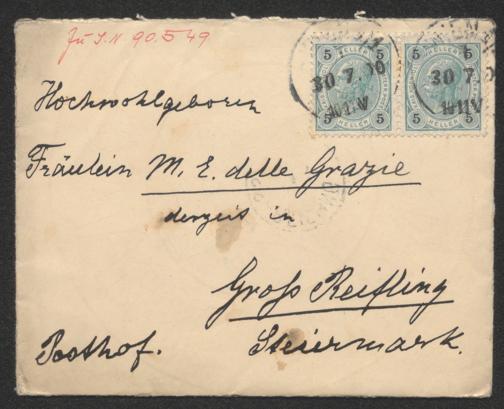 Zu I.N 90.549
5 HELLER 5
5 5
5 HELLER 5
5 5
30 7.00
30 7.0
Hochwohlgeboren
Fräulein M. E. delle Grazie
derzeit in
Groß Reifling
Posthof. Steiermark.